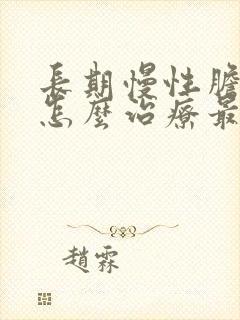 長期慢性膽
怎麼治療最
趙霖